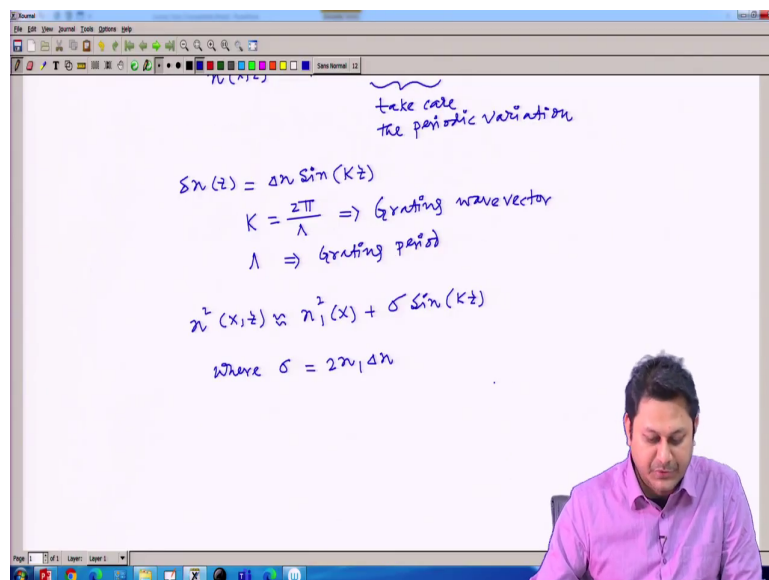 Xournal
File Edit View Journal Tools Options Help
Sans Normal 12
n(x,z)
take care
the periodic variation
δn(z) = Δn Sin(Kz)
K = 2π/Λ ⇒ Grating wave vector
Λ ⇒ Grating period
n²(x,z) ≈ n₁²(x) + σ Sin(Kz)
where σ = 2n₁Δn
Page 1 of 1 Layer: Layer 1